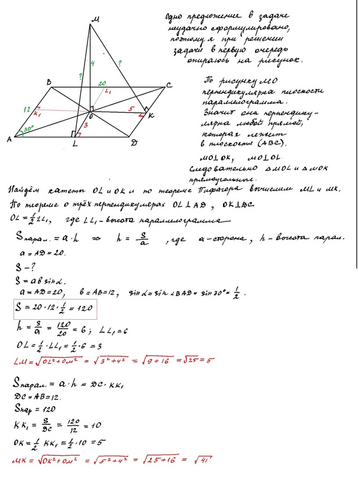 Одно предложение в задаче
неудачно сформулировано,
поэтому я при решении
задачи в первую очередь
опираюсь на рисунок.
M
B
C
A
D
O
L
K
L₁
K₁
20
12
30°
4
3
5
?
?
По рисунку MO
перпендикулярна плоскости
параллелограмма.
Значит она перпендику-
лярна любой прямой,
которая лежит
в плоскости (ABC).
MO⊥OK, MO⊥OL
Следовательно △MOL и △MOK
прямоугольные.
Найдём катеты OL и OK и по теореме Пифагора вычислим ML и MK.
По теореме о трёх перпендикулярах OL⊥AD, OK⊥DC.
OL = ½ LL₁, где LL₁ - высота параллелограмма
Sпарал. = a·h ⇒ h = S/a, где a - сторона, h - высота парал.
a = AD = 20.
S - ?
S = ab sin α.
a = AD = 20, b = AB = 12, sin α = sin∠BAD = sin 30° = ½.
S = 20·12·½ = 120
h = S/a = 120/20 = 6; LL₁ = 6
OL = ½·LL₁ = ½·6 = 3
LM = √(OL²+OM²) = √(3²+4²) = √(9+16) = √25 = 5
Sпарал = a·h = DC·KK₁
DC = AB = 12.
Sпар = 120
KK₁ = S/DC = 120/12 = 10
OK = ½ KK₁ = ½·10 = 5
MK = √(OK²+OM²) = √(5²+4²) = √(25+16) = √41